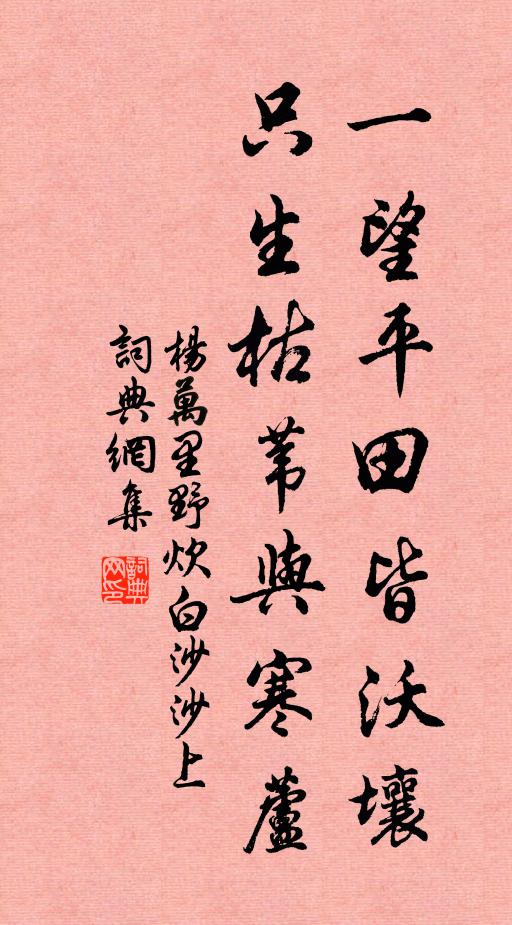 一望平田皆沃壤
只生枯苇與寒蘆
楊萬里野炊白沙沙上
詞典網集
詞典網印